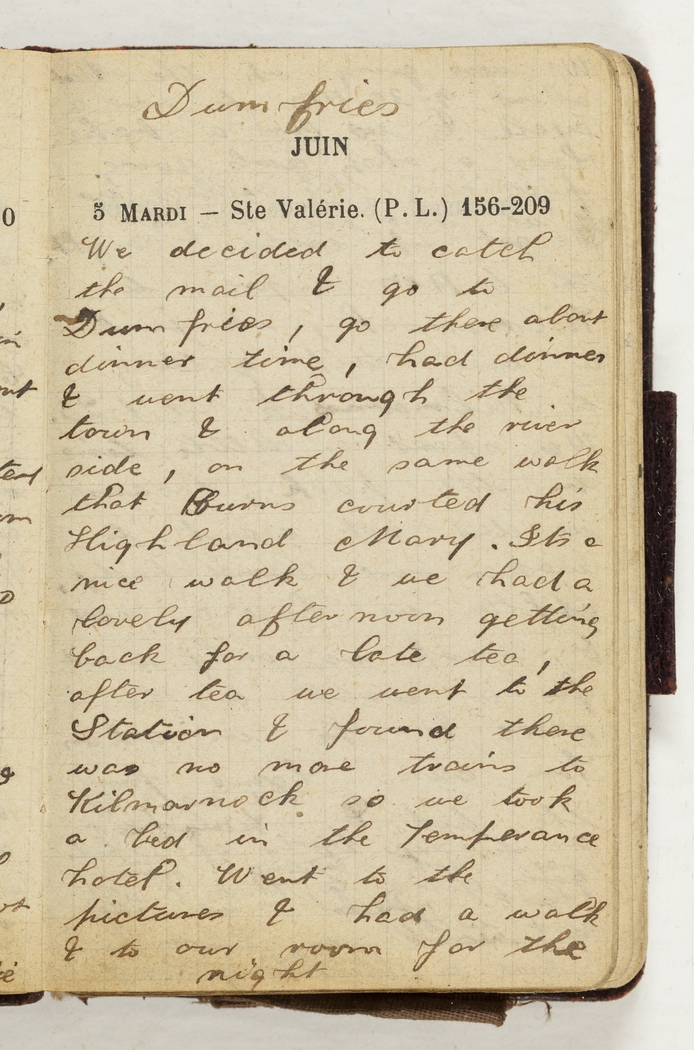 Dumfries
JUIN
5 MARDI — Ste Valérie. (P. L.) 156-209
We decided to catch
the mail & go to
Dumfries, go there about
dinner time, had dinner
& went through the
town & along the river
side, on the same walk
that Burns courted his
Highland Mary. Its a
nice walk & we had a
lovely afternoon getting
back for a late tea,
after tea we went to the
Station & found there
was no more trains to
Kilmarnock so we took
a bed in the Temperance
hotel. Went to the
pictures & had a walk
& to our room for the
night